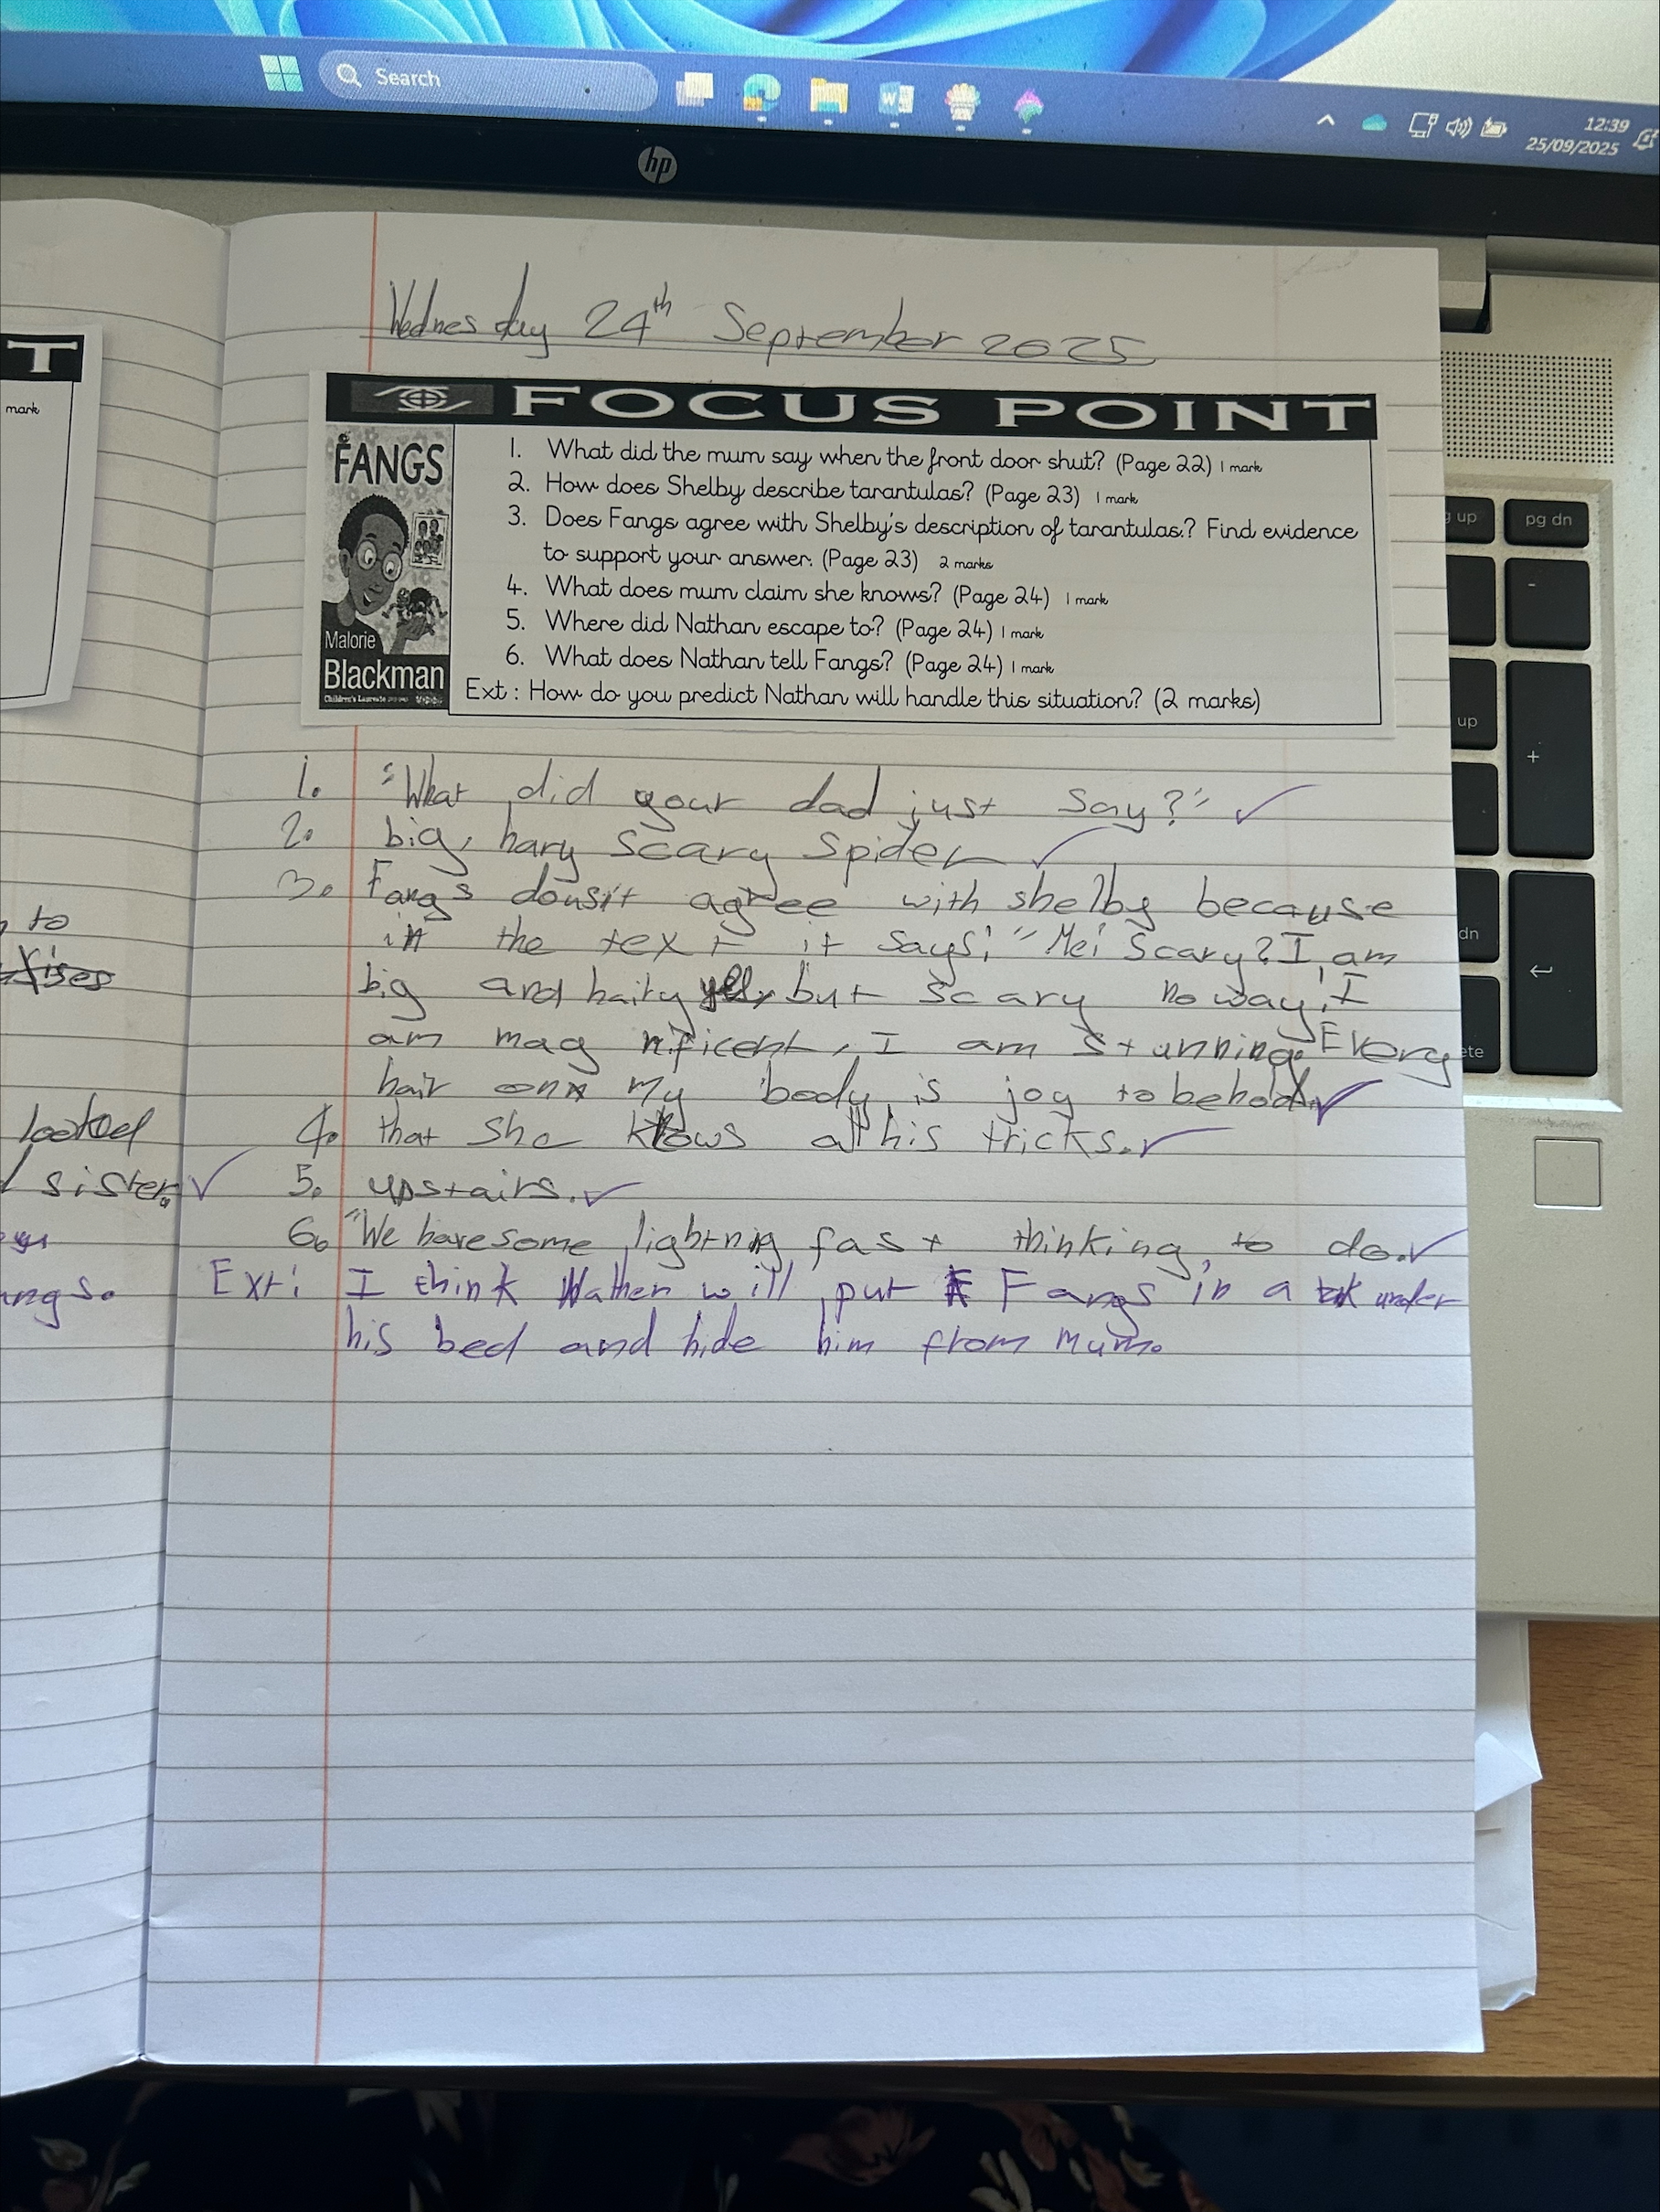 Search
12:39
25/09/2025
hp
T
mark
to
looked
sister.
Wednesday 24th September 2025
FOCUS POINT
FANGS
Malorie
Blackman
1. What did the mum say when the front door shut? (Page 22) 1 mark
2. How does Shelby describe tarantulas? (Page 23) 1 mark
3. Does Fangs agree with Shelby's description of tarantulas? Find evidence
to support your answer. (Page 23) 2 marks
4. What does mum claim she knows? (Page 24) 1 mark
5. Where did Nathan escape to? (Page 24) 1 mark
6. What does Nathan tell Fangs? (Page 24) 1 mark
Ext : How do you predict Nathan will handle this situation? (2 marks)
1. "What did your dad just say?"
2. big, hary scary spider
3. Fangs dousit agree with shelby because
in the text it says; "Me! Scary? I am
big and hairy yes, but scary no way! I
am mag nificent, I am stunning. Every
hair on my body is joy to behold.
4. that she knows all his tricks.
5. upstairs.
6. "We have some lightning fast thinking to do.
Ext: I think Nathen will put Fangs in a under
his bed and hide him from Mum.
pg dn
up
dn
-
+